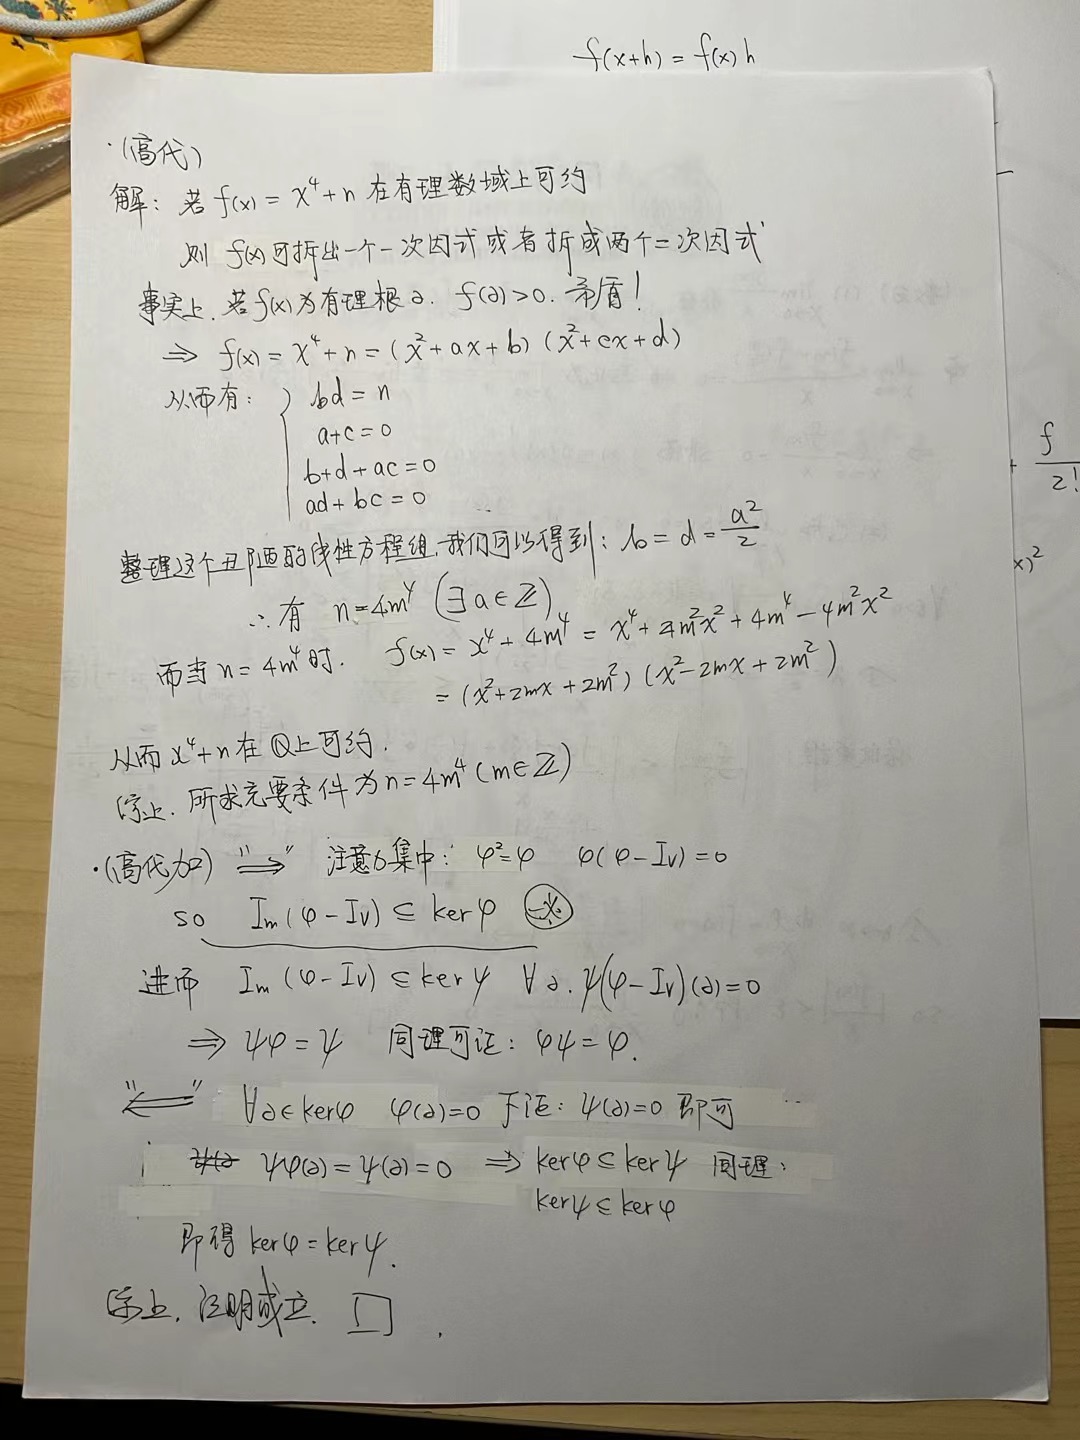 f(x+h) = f(x)h
·(高代)
解: 若 f(x) = x⁴+n 在有理数域上可约
则 f(x)可拆出一个一次因式或者拆成两个二次因式
事实上, 若f(x)为有理根a. f(a)>0. 矛盾!
⇒ f(x) = x⁴+n = (x²+ax+b) (x²+cx+d)
从而有: bd = n
a+c=0
b+d+ac=0
ad+bc=0
整理这个丑陋的线性方程组, 我们可以得到: b=d=a²/2
∴有 n=4m⁴ (∃a∈ℤ)
而当 n=4m⁴时. f(x) = x⁴+4m⁴ = x⁴+4m²x²+4m⁴-4m²x²
= (x²+2mx+2m²) (x²-2mx+2m²)
从而 x⁴+n 在ℚ上可约.
综上. 所求充要条件为n=4m⁴(m∈ℤ)
·(高代加) "⇒" 注意力集中: φ²=φ φ(φ-Iv)=0
so Im(φ-Iv) ⊆ kerφ
进而 Im(φ-Iv) ⊆ kerψ ∀a. ψ(φ-Iv)(a)=0
⇒ ψφ=ψ 同理可证: φψ=φ.
"⇐" ∀a∈kerφ φ(a)=0 下证: ψ(a)=0 即可
ψφ(a)=ψ(a)=0 ⇒ kerφ⊆kerψ 同理:
kerψ⊆kerφ
即得 kerφ=kerψ.
综上, 证明成立. □
f
2!
x)²